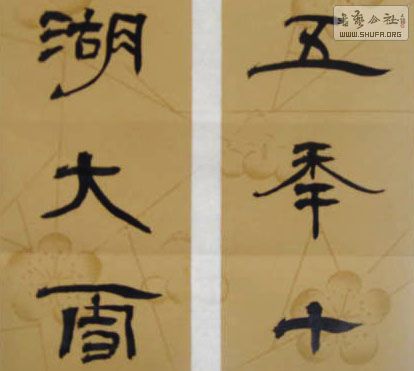 五年十
湖大雪
书艺公社
WWW.SHUFA.ORG